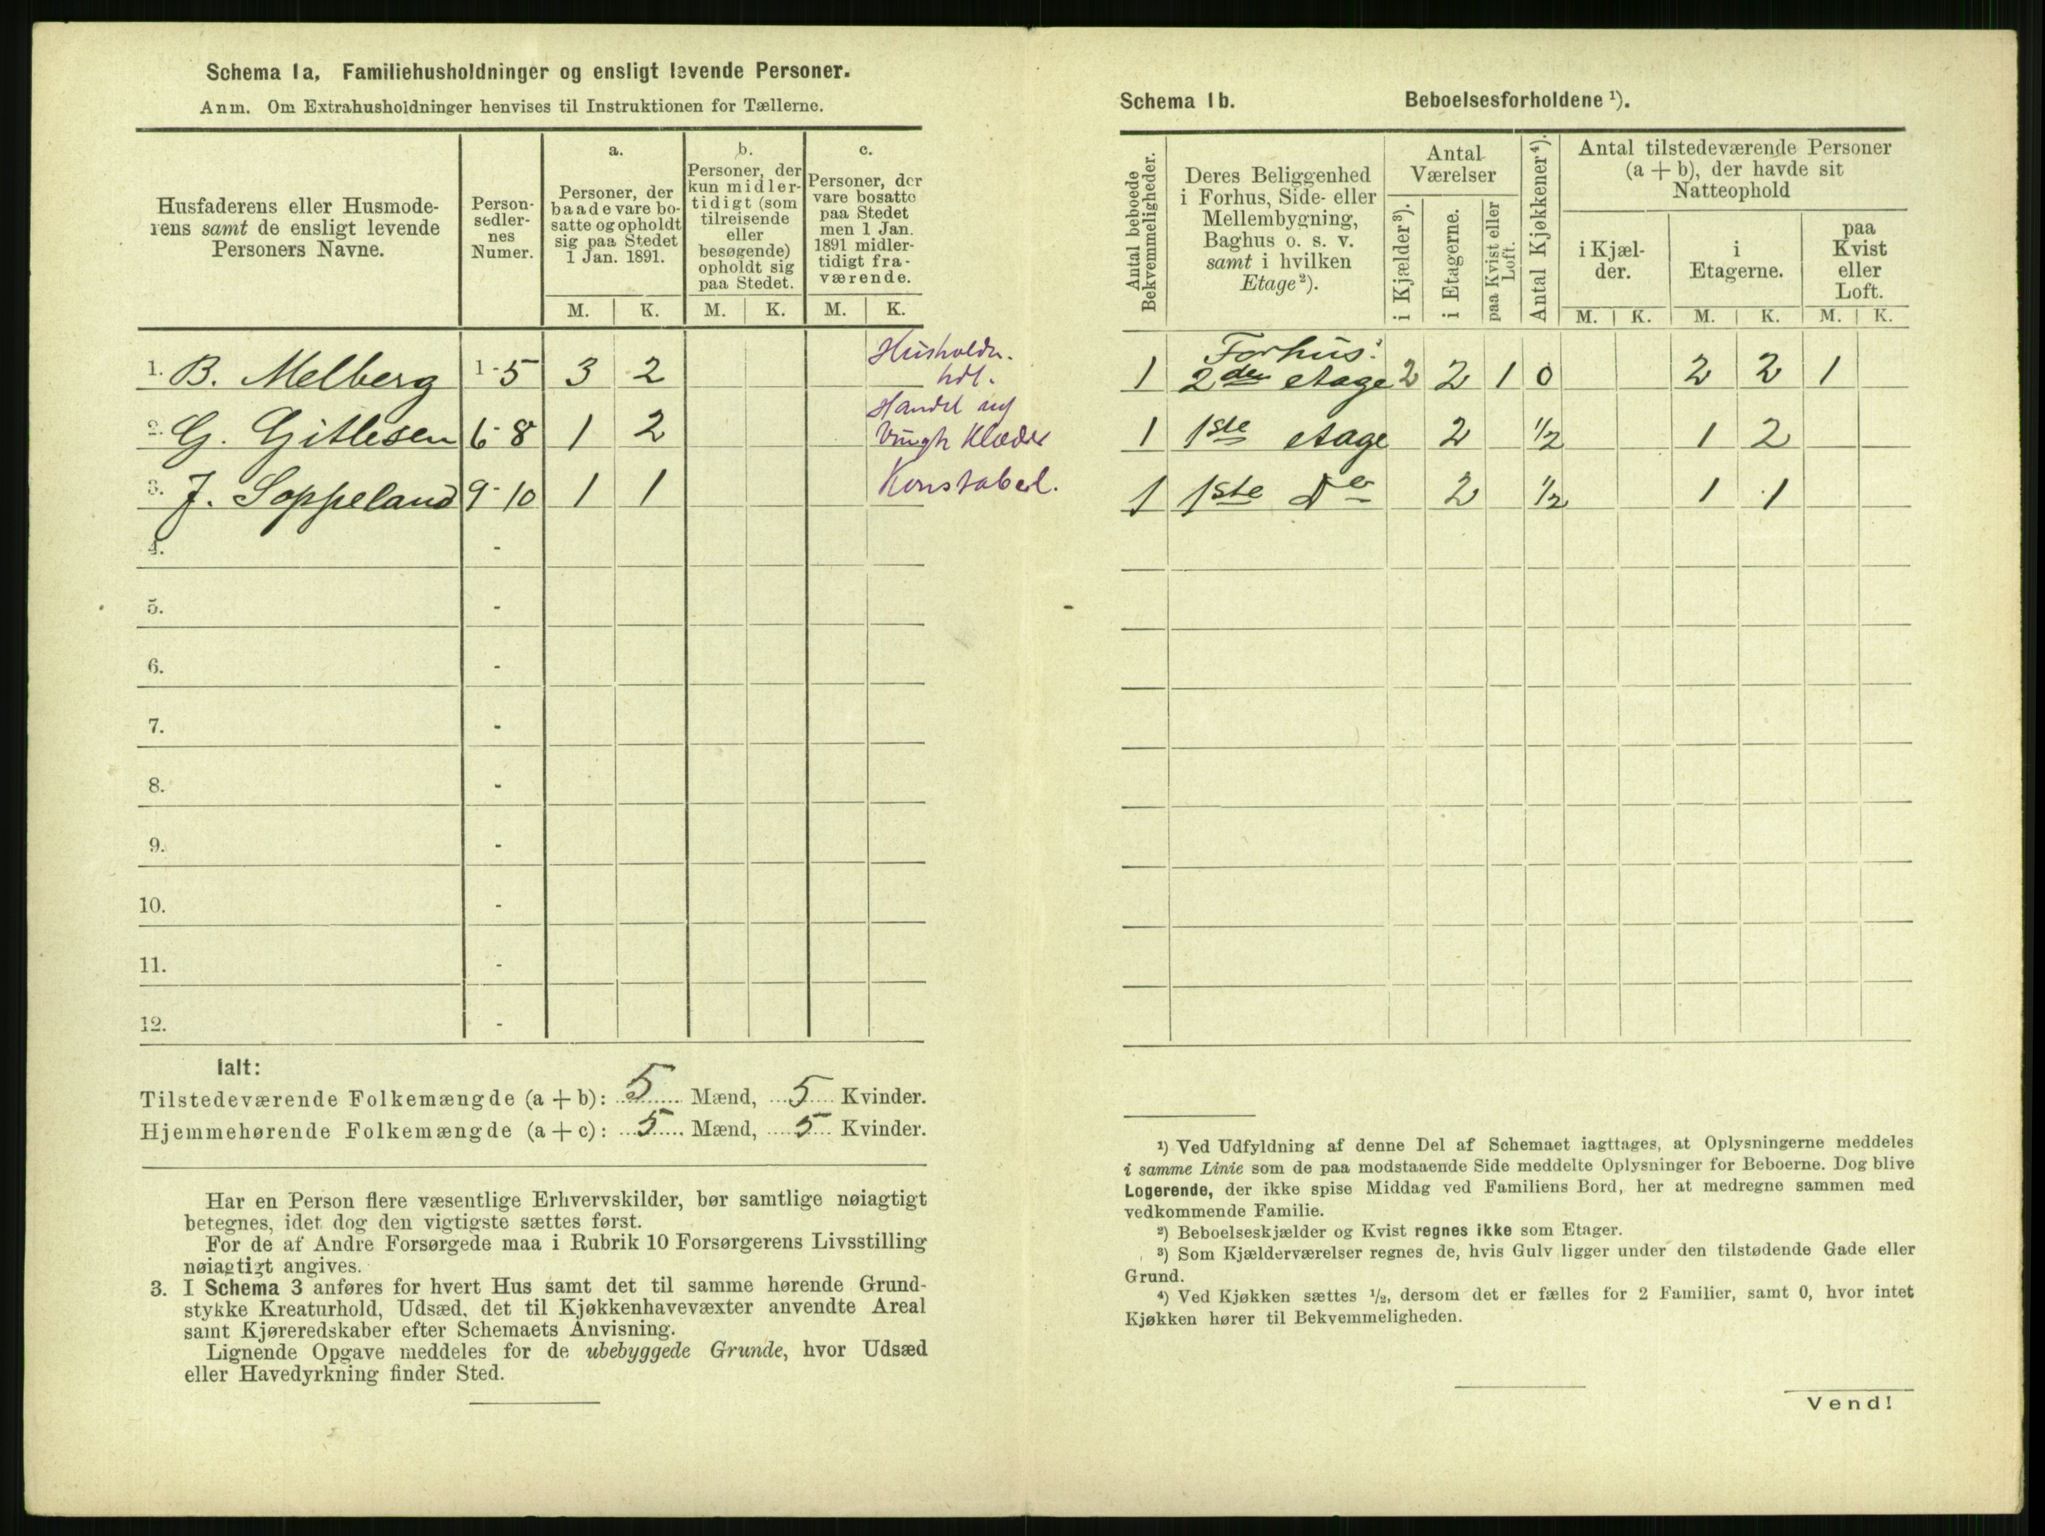 Schema 1a, Familiehusholdninger og ensligt levende Personer.
Anm. Om Extrahusholdninger henvises til Instruktionen for Tællerne.
Husfaderens eller Husmode-
rens samt de ensligt levende
Personers Navne.
Person-
sedler-
nes
Numer.
a.
Personer, der
baade vare bo-
satte og opholdt
sig paa Stedet
1 Jan. 1891.
b.
Personer, der
kun midler-
tidigt (som
tilreisende
eller
besøgende)
opholdt sig
paa Stedet.
c.
Personer, der
vare bosatte
paa Stedet
men 1 Jan.
1891 midler-
tidigt fra-
værende.
M. K. M. K. M. K.
1. B. Melberg 1-5 3 2 Husholdn.
2. G. Gitlesen 6-8 1 2 Handel
Klæder
3. J. Soppeland 9-10 1 1 Konstabel.
4. -
5. -
6. -
7. -
8. -
9. -
10. -
11. -
12. -
Ialt:
Tilstedeværende Folkemængde (a + b): 5 Mænd, 5 Kvinder.
Hjemmehørende Folkemængde (a + c): 5 Mænd, 5 Kvinder.
Har en Person flere væsentlige Erhvervskilder, bør samtlige nøiagtigt
betegnes, idet dog den vigtigste sættes først.
For de af Andre Forsørgede maa i Rubrik 10 Forsørgerens Livsstilling
nøiagtigt angives.
3. I Schema 3 anføres for hvert Hus samt det til samme hørende Grund-
stykke Kreaturhold, Udsæd, det til Kjøkkenhavevæxter anvendte Areal
samt Kjøreredskaber efter Schemaets Anvisning.
Lignende Opgave meddeles for de ubebyggede Grunde, hvor Udsæd
eller Havedyrkning finder Sted.
Schema 1b. Beboelsesforholdene ¹).
Antal beboede
Bekvemmeligheder.
Deres Beliggenhed
i Forhus, Side- eller
Mellembygning,
Baghus o. s. v.
samt i hvilken
Etage²).
Antal
Værelser
i Kjælder³).
i Etagerne.
paa Kvist eller
Loft.
Antal Kjøkkener⁴).
Antal tilstedeværende Personer
(a + b), der havde sit
Natteophold
i Kjæl-
der.
i
Etagerne.
paa
Kvist
eller
Loft.
M. K. M. K. M. K.
Forhus:
1 2den etage 2 2 1 0 2 2 1
1 1ste etage 2 1/2 1 2
1 1ste Do 2 1/2 1 1
¹) Ved Udfyldning af denne Del af Schemaet iagttages, at Oplysningerne meddeles
i samme Linie som de paa modstaaende Side meddelte Oplysninger for Beboerne. Dog blive
Logerende, der ikke spise Middag ved Familiens Bord, her at medregne sammen med
vedkommende Familie.
²) Beboelseskjælder og Kvist regnes ikke som Etager.
³) Som Kjælderværelser regnes de, hvis Gulv ligger under den tilstødende Gade eller
Grund.
⁴) Ved Kjøkken sættes ¹/₂, dersom det er fælles for 2 Familier, samt 0, hvor intet
Kjøkken hører til Bekvemmeligheden.
Vend!